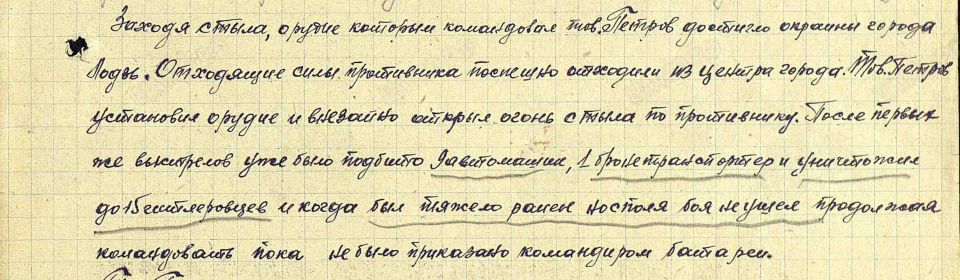 Заходя с тыла, орудие которым командовал тов. Петров достигло окраины города
Лодзь. Отходящие силы противника поспешно отходили из центра города. Тов. Петров
установил орудие и внезапно открыл огонь с тыла по противнику. После первых
же выстрелов уже было подбито 9 автомашин, 1 бронетранспортер и уничтожил
до 15 гитлеровцев и когда был тяжело ранен но с поля боя не ушел продолжая
командовать пока не было приказано командиром батареи.